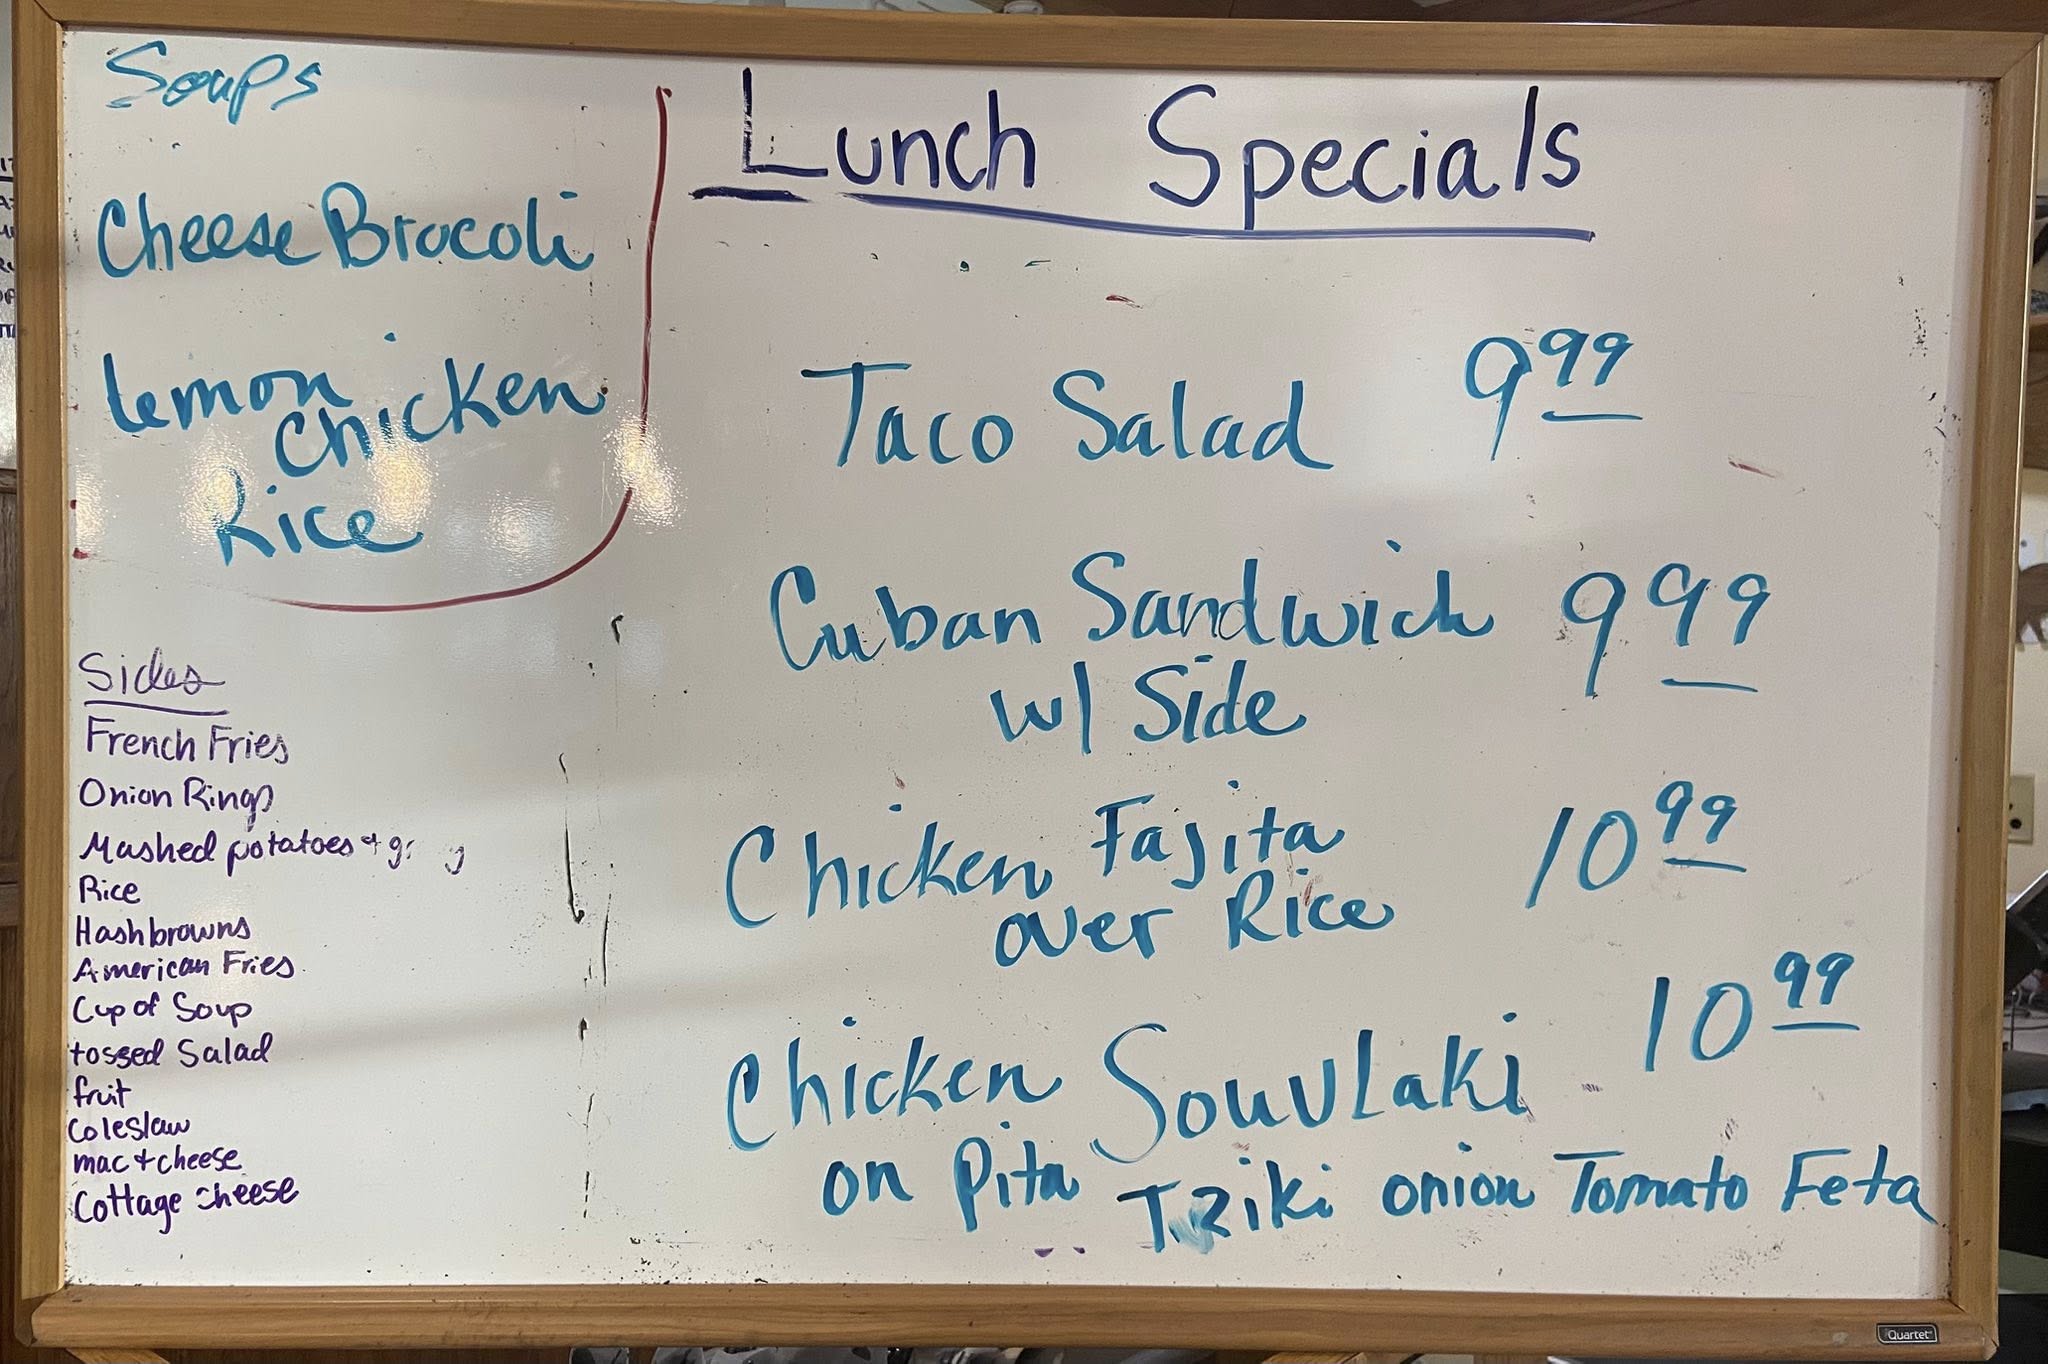 Soups
Cheese Brocoli
Lemon
Chicken
Rice
Sides
French Fries
Onion Rings
Mashed potatoes +
Rice
Hashbrowns
American Fries
Cup of Soup
tossed Salad
fruit
Coleslaw
mac + cheese
Cottage cheese
Lunch Specials
Taco Salad 9 99
Cuban Sandwich 9 99
w/ Side
Chicken Fajita 10 99
over Rice
Chicken Souvlaki 10 99
on Pita Tziki onion Tomato Feta
Quartet